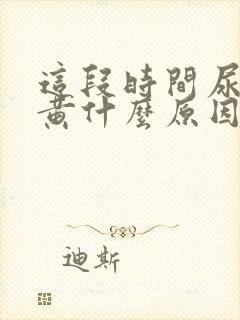 這段時間尿
黃什麼原因
迪斯